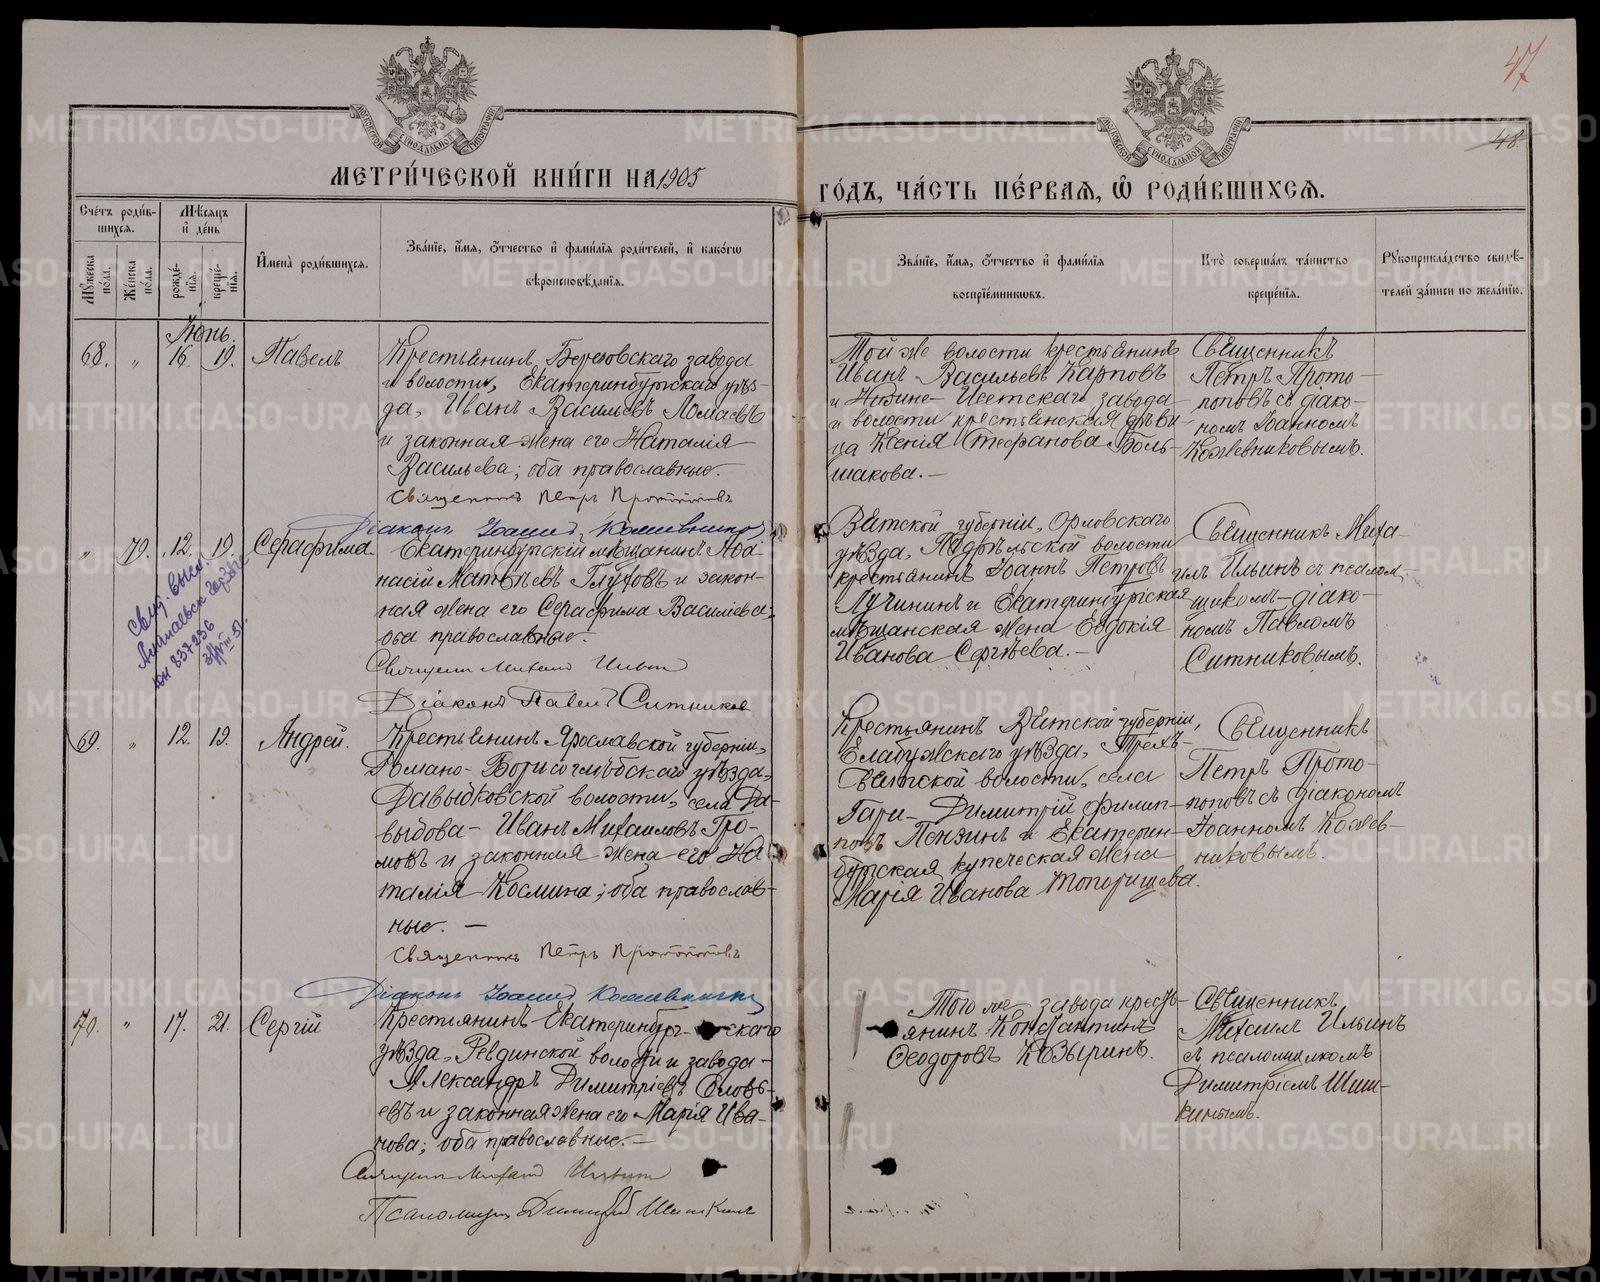 47
48
МЕТРИ́ЧЕСКОЙ КНИ́ГИ НА 1905
ГО́ДЪ, ЧА́СТЬ ПЕ́РВАЯ, Ѽ РОДИ́ВШИХСЯ.
Сче́тъ роди́в-
шихся.
Мꙋжеска по́ла.
Же́нска по́ла.
Мѣ́сяцъ и҆ де́нь
рожде́-
нїя.
креще́-
нїя.
И҆мена̀ роди́вшихся.
Зва́нїе, и҆́мя, ѻ҆́тчество и҆ фами́лїя роди́телей, и҆ како́гѡ
вѣроисповѣ́данїя.
Зва́нїе, и҆́мя, ѻ҆́тчество и҆ фами́лїя
воспрїе́мникѡвъ.
Кто̀ соверша́лъ та́инство
креще́нїя.
Рꙋкоприкла́дство свидѣ́-
телей за́писи по жела́нїю.
Іюнь.
68. " 16. 19. Павелъ
Крестьянинъ Березовскаго завода
и волости, Екатеринбургскаго уѣз-
да, Иванъ Васильевъ Ломаевъ
и законная жена его Наталія
Васильева; оба православные.
Священникъ Петръ Протопоповъ
Діаконъ Іоаннъ Кожевниковъ
Той же волости крестьянинъ
Иванъ Васильевъ Карповъ
и Нижне-Исетскаго завода
и волости крестьянская дѣви-
ца Ксенія Стефанова Боль-
шакова.
Священникъ
Петръ Прото-
поповъ съ діако-
номъ Іоанномъ
Кожевниковымъ.
" 79. 12. 19. Серафима.
Екатеринбургскій мѣщанинъ Аѳа-
насій Матвѣевъ Глуховъ и закон-
ная жена его Серафима Васильева;
оба православные.
Священникъ Михаилъ Ильинъ
Діаконъ Павелъ Ситниковъ
Вятской губерніи, Орловскаго
уѣзда, Подрѣльской волости
крестьянинъ Іоаннъ Петровъ
Лучининъ и Екатеринбургская
мѣщанская жена Евдокія
Иванова Сергѣева.
Священникъ Миха-
илъ Ильинъ съ псалом-
щикомъ-діако-
номъ Павломъ
Ситниковымъ.
69. " 12. 19. Андрей.
Крестьянинъ Ярославской губерніи,
Романо-Борисоглѣбскаго уѣзда,
Давыдковской волости, села Да-
выдова- Иванъ Михаиловъ Гро-
мовъ и законная жена его На-
талія Космина; оба православ-
ные.
Священникъ Петръ Протопоповъ
Діаконъ Іоаннъ Кожевниковъ
Крестьянинъ Вятской губерніи,
Елабужскаго уѣзда, Трехъ-
Святской волости, села
Гари- Димитрій Филип-
повъ Пензинъ и Екатерин-
бургская купеческая жена
Марія Иванова Топорищева.
Священникъ
Петръ Прото-
поповъ съ діакономъ
Іоанномъ Кожев-
никовымъ.
70. " 17. 21. Сергій
Крестьянинъ Екатеринбургскаго
уѣзда, Ревдинской волости и завода-
Александръ Димитріевъ Соловь-
евъ и законная жена его Марія Ива-
нова; оба православные.
Священникъ Михаилъ Ильинъ
Псаломщикъ Димитрій Шишкинъ
Того же завода кресть-
янинъ Константинъ
Ѳеодоровъ Козыринъ.
Священникъ
Михаилъ Ильинъ
съ псаломщикомъ
Димитріемъ Шиш-
кинымъ.